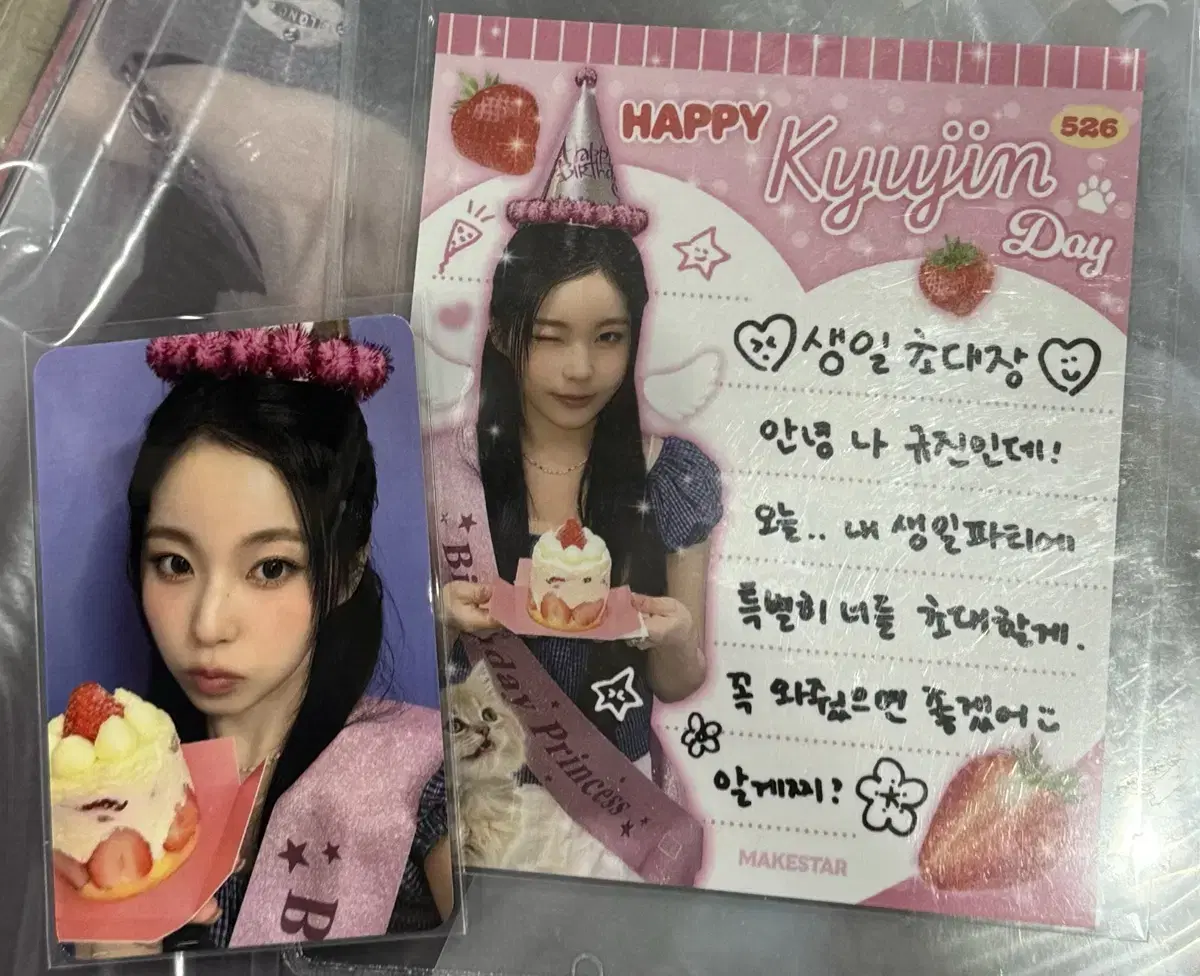 HAPPY
526
Kyujin
Day
Happy
BiRthday
생일 초대장
안녕 나 규진인데!
오늘.. 내 생일파티에
특별히 너를 초대할게.
꼭 와줬으면 좋겠어
알게찌?
Birthday Princess
MAKESTAR
B